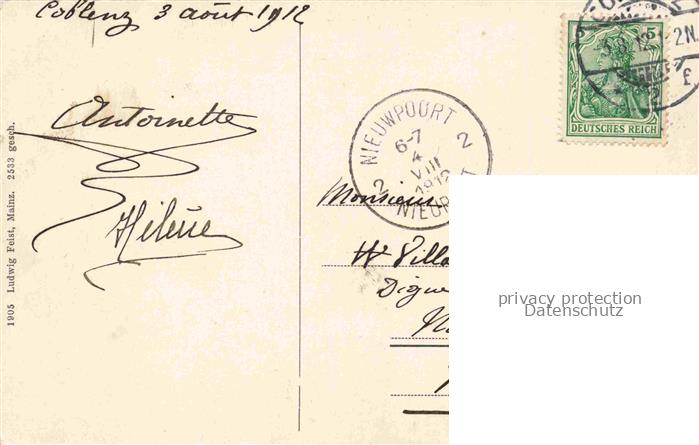 Coblenz 3 août 1912
Antoinette
Hélène
1905 Ludwig Feist, Mainz. 2533 gesch.
5
DEUTSCHES REICH
3.8.12. 1-2N.
f
NIEUWPOORT
6-7
4
VIII
1912
2 2
NIEUPORT
Monsieur
W Villa
Digue
privacy protection
Datenschutz